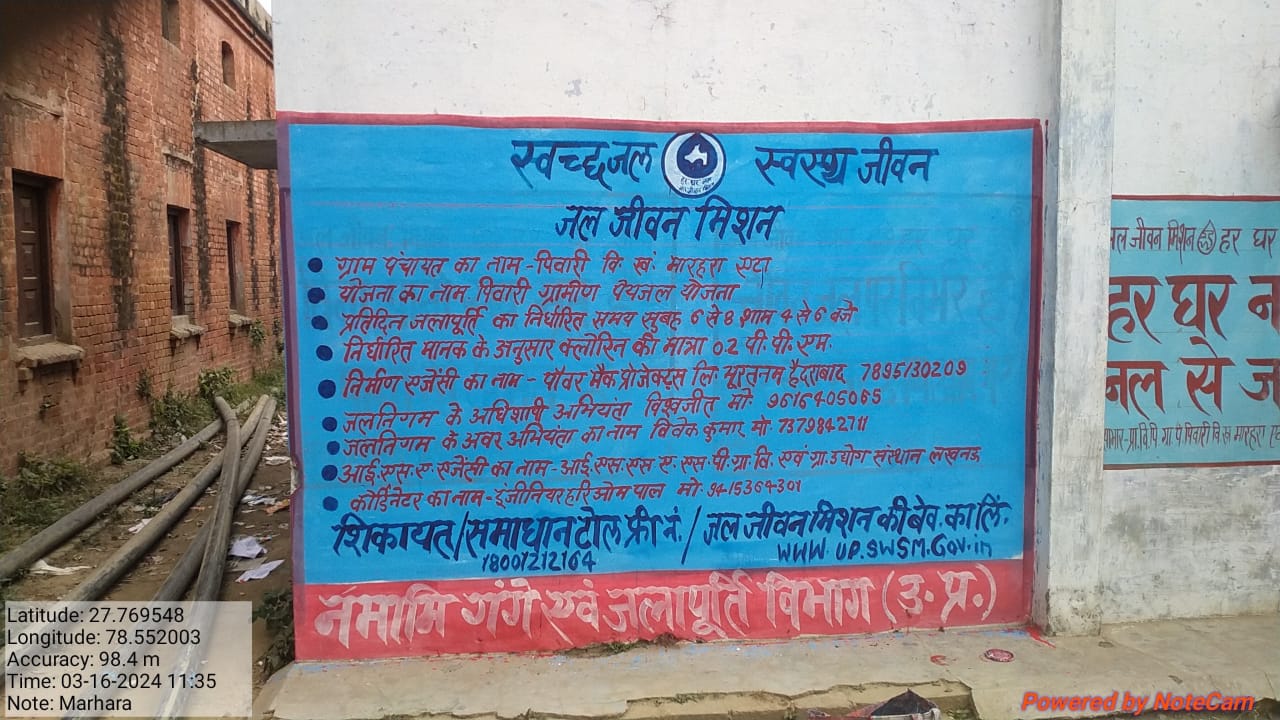 स्वच्छ जल स्वस्थ जीवन
हर घर जल
जल जीवन मिशन
जल जीवन मिशन
ग्राम पंचायत का नाम - पिवारी वि॰ खं॰ मारहरा एटा
योजना का नाम पिवारी ग्रामीण पेयजल योजना
प्रतिदिन जलापूर्ति का निर्धारित समय सुबह 6 से 8 शाम 4 से 6 बजे
निर्धारित मानक के अनुसार क्लोरिन की मात्रा 0.2 पी.पी.एम.
निर्माण एजेंसी का नाम - पॉवर मैक प्रोजेक्ट्स लि॰ हैदराबाद 7895130209
जलनिगम के अधिशाषी अभियंता विश्वजीत मो॰ 9616405065
जलनिगम के अवर अभियंता का नाम विवेक कुमार मो॰ 7379842711
आई.एस.ए. एजेंसी का नाम - आई.एस.एस.ए. एस.पी.ग्रा.वि. एवं ग्रा.उद्योग संस्थान लखनऊ
कोर्डिनेटर का नाम - इंजीनियर हरिओम पाल मो॰ 9415364301
शिकायत/समाधान टोल फ्री नं॰ / जल जीवन मिशन की बेव. का लिं.
18001212164 WWW.UP.SWSM.Gov.in
नमामि गंगे एवं जलापूर्ति विभाग (उ॰ प्र॰)
जल जीवन मिशन हर घर
हर घर न
जल से ज
प्रा.वि.पि. ग्रा.पं पिवारी वि.ख मारहरा
Latitude: 27.769548
Longitude: 78.552003
Accuracy: 98.4 m
Time: 03-16-2024 11:35
Note: Marhara
Powered by NoteCam